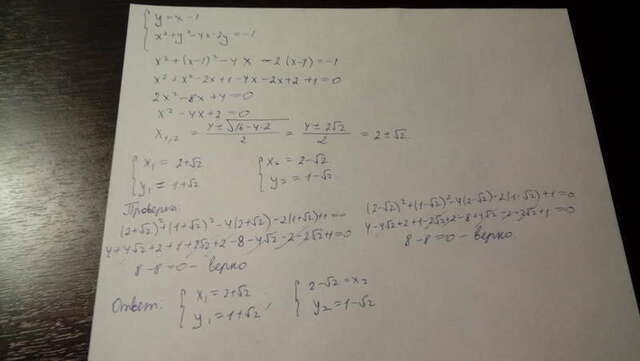 { y = x - 1
x² + y² - 4x - 2y = -1
x² + (x-1)² - 4x - 2(x-1) = -1
x² + x² - 2x + 1 - 4x - 2x + 2 + 1 = 0
2x² - 8x + 4 = 0
x² - 4x + 2 = 0
x₁,₂ = (4 ± √(16 - 4·2))/2 = (4 ± 2√2)/2 = 2 ± √2.
{ x₁ = 2+√2 { x₂ = 2-√2
y₁ = 1+√2 y₂ = 1-√2
Проверка:
(2+√2)² + (1+√2)² - 4(2+√2) - 2(1+√2) + 1 = 0
4 + 4√2 + 2 + 1 + 2√2 + 2 - 8 - 4√2 - 2 - 2√2 + 1 = 0
8 - 8 = 0 - верно
(2-√2)² + (1-√2)² - 4(2-√2) - 2(1-√2) + 1 = 0
4 - 4√2 + 2 + 1 - 2√2 + 2 - 8 + 4√2 - 2 + 2√2 + 1 = 0
8 - 8 = 0 - верно.
Ответ: { x₁ = 2+√2 { 2-√2 = x₂
y₁ = 1+√2 ; y₂ = 1-√2